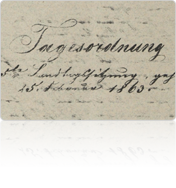 Tagesordnung
5te Landtagssitzung
25. Februar 1863